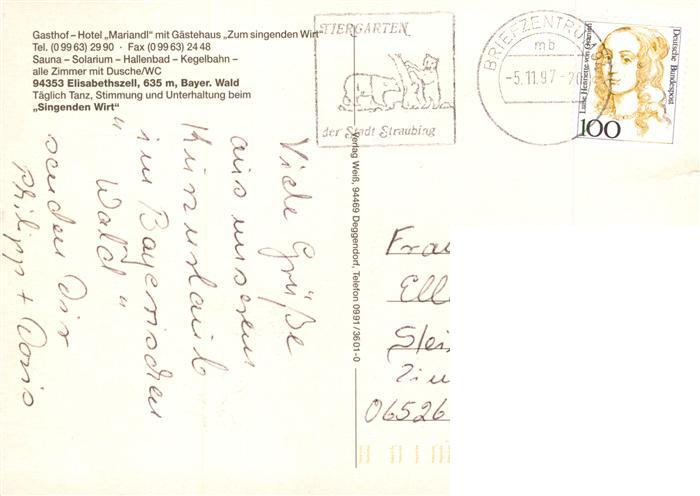 Gasthof – Hotel „Mariandl" mit Gästehaus „Zum singenden Wirt"
Tel. (0 99 63) 29 90 · Fax (0 99 63) 24 48
Sauna – Solarium – Hallenbad – Kegelbahn –
alle Zimmer mit Dusche/WC
94353 Elisabethszell, 635 m, Bayer. Wald
Täglich Tanz, Stimmung und Unterhaltung beim
„Singenden Wirt"
TIERGARTEN
der Stadt Straubing
BRIEFZENTRU
mb
-5.11.97-20
Deutsche Bundespost
Luise Henriette von Oranien
100
Verlag Weiß, 94469 Deggendorf, Telefon 0991/3601-0
Viele Grüße
aus unserem
Kurzurlaub
im Bayerischen
" Wald "
senden Dir
Philipp + Doris
Frau
Ell
06526